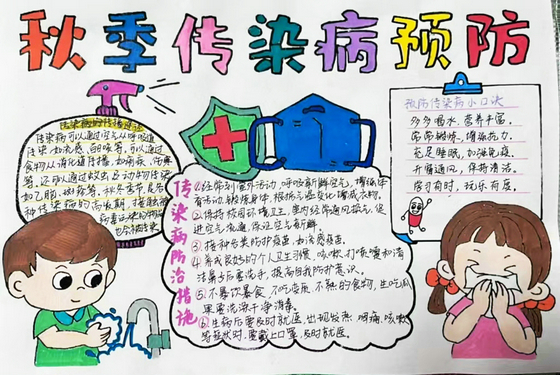 秋季传染病预防
传染病的传播途径
传染病可以通过空气从呼吸道
传染,如流感、百日咳等,可以通过
食物从消化道传播,如痢疾、伤寒
等,还可以通过蚊虫
如乙脑、
种传染病的高发期,接触被
病毒
也会被传染
预防传染病小口诀
多多喝水,营养丰富。
常常锻炼,增强抗力。
充足睡眠,加强免疫。
开窗通风,保持清洁。
学习有时,玩乐有度。
传染病防治措施
①经常到室外活动,呼吸新鲜空气,增强体
育活动,锻炼身体,根据气温变化增减衣物。
②保持校园环境卫生,室内经常通风换气,促
进空气流通,保证空气新鲜。
③接种各类防护疫苗,如流感疫苗。
④养成良好的个人卫生习惯,咳嗽、打喷嚏和清
洁鼻子后要洗手,提高自我防护意识。
⑤不暴饮暴食,不吃变质、不熟的食物,生吃瓜
果要洗净
⑥生病后要及时就医,出现发热、咽痛、咳嗽
等症状时,要戴上口罩,及时就医。